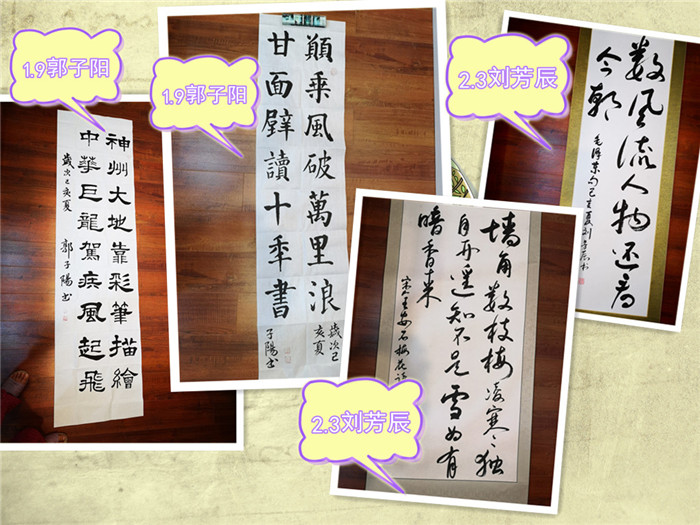 1.9郭子阳
神州大地靠彩筆描繪
中華巨龍駕疾風起飛
歲次己亥夏
郭子陽书
1.9郭子阳
願乘風破萬里浪
甘面壁讀十年書
歲次己
亥夏
子陽书
2.3刘芳辰
数风流人物还看
今朝
毛泽东句己亥夏刘芳辰书
2.3刘芳辰
墙角数枝梅凌寒独
自开遥知不是雪为有
暗香来
宋王安石梅花诗